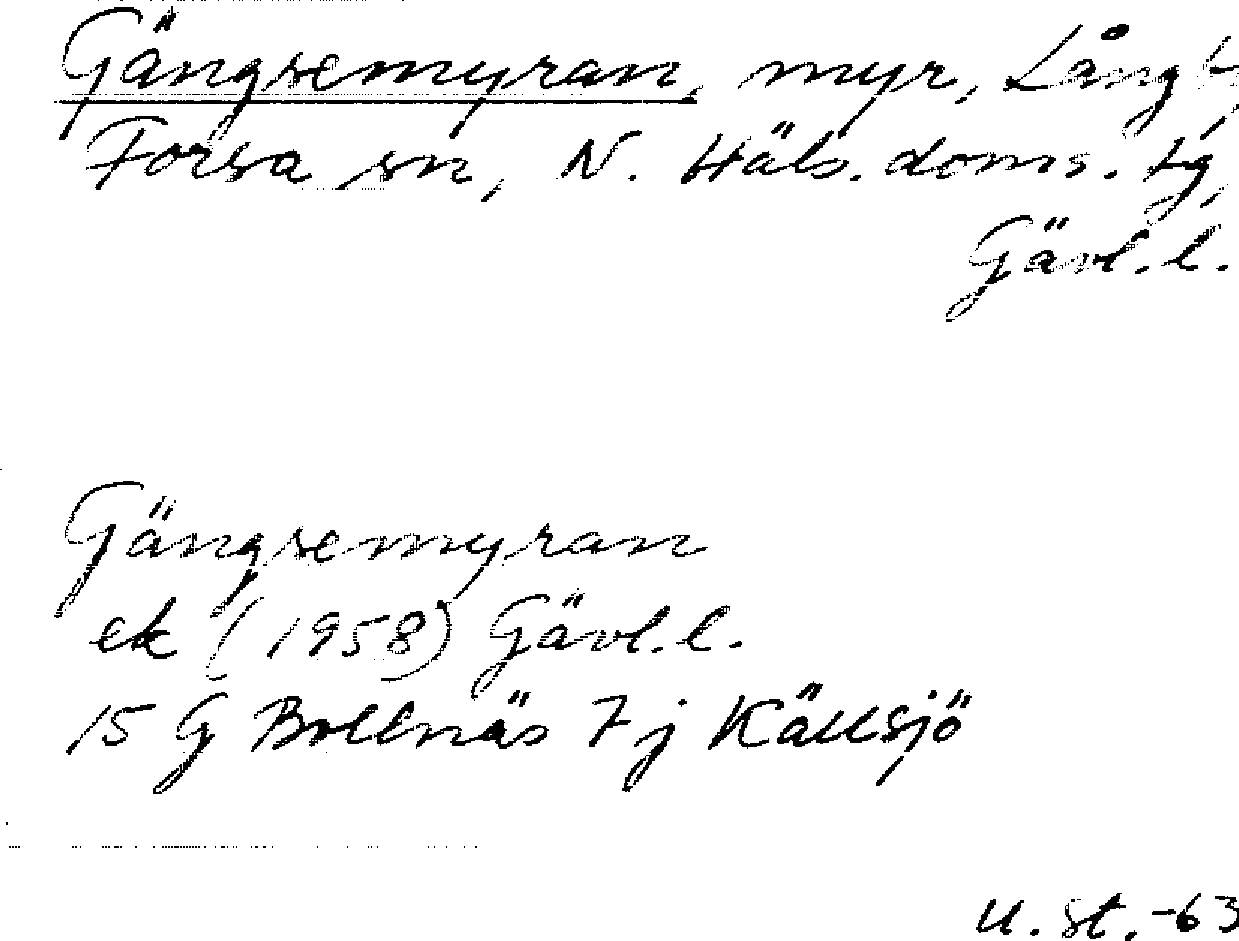 Gängsemyran, myr, Långby,
Forsa sn, N. Häls. doms. tg,
Gävl. l.
Gängsemyran
ek (1958) Gävl. l.
15 G Bollnäs 7 j Källsjö
U. St. -63